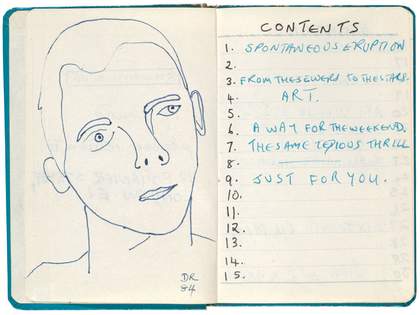 DR
84
CONTENTS
1. SPONTANEOUS ERUPTION
2.
3. FROM THE SEWERS TO THE STARS.
4. ART.
5.
6. A WAY FOR THE WEEKEND.
7. THE SAME TEDIOUS THRILL
8.
9. JUST FOR YOU.
10.
11.
12.
13.
14.
15.